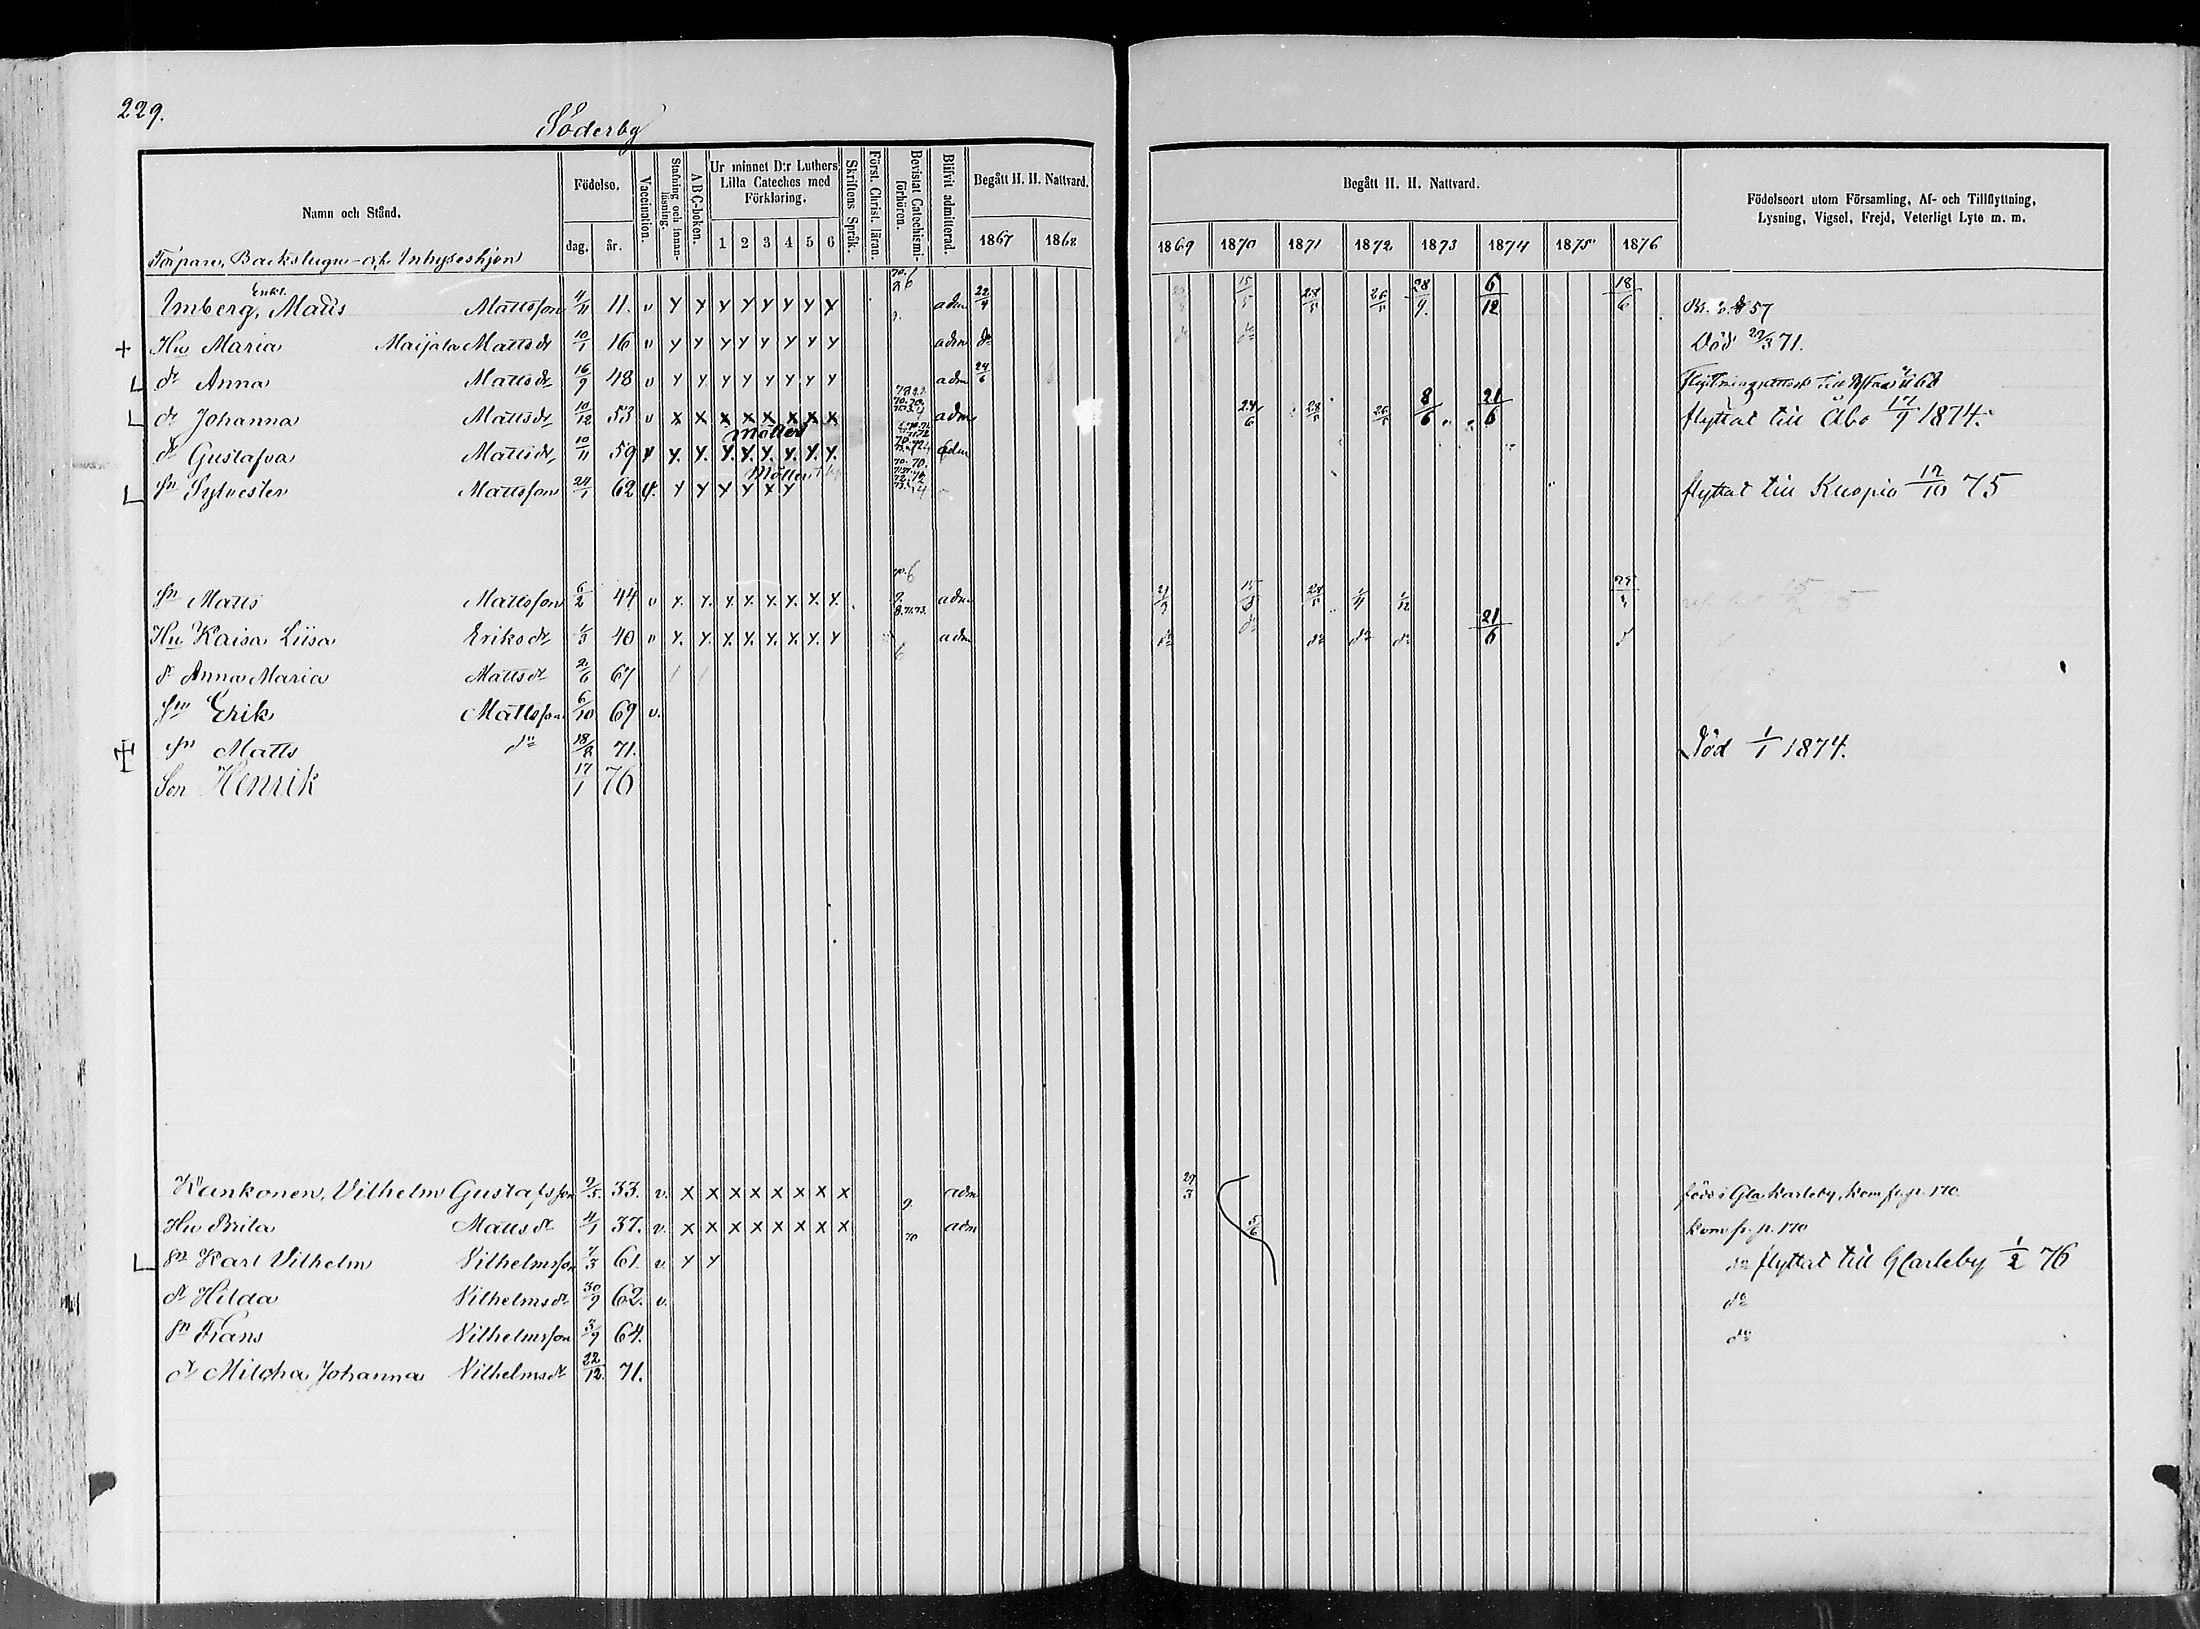 229.
Söderby
Namn och Stånd. Födelse. Vaccination. Stafning och innanläsning. A B C-boken. Ur minnet D:r Luthers Lilla Cateches med Förklaring. Skriftens Språk. Först. Christ. läran. Bevistat Catechismiförhören. Blifvit admitterad. Begått H. H. Nattvard. Begått H. H. Nattvard. Födelseort utom Församling, Af- och Tillflyttning, Lysning, Vigsel, Frejd, Veterligt Lyte m. m.
dag. år. 1 2 3 4 5 6 1867 1868 1869 1870 1871 1872 1873 1874 1875 1876
Torpare, Backstugu- och Inhyseshjon
enkl.
Imberg, Matts Mattsson 4/11 11. v adm 22/4 15/5 28/5 26/5 28/9. 6/12 18/6 57
+ Hu Maria Maijala Mattsdr 10/1 16 v adm do do do Död 29/3 71.
dr Anna Mattsdr 16/9 48 v adm 24/6 68
dr Johanna Mattsdr 10/12 53 v adm 24/6 28/5 26/5 8/6 21/6 flyttat till Åbo 17/9 1874.
Möller
dr Gustafva Mattsdr 10/11 59 adm
Möller
sn Sylvester Mattsson 24/1 62 flyttat till Kuopio 12/10 75
sn Matts Mattsson 6/2 44 v adm 21/3 15/5 28/5 1/4 1/12
Hu Kaisa Liisa Eriksdr 1/3 40 v adm do do do do do 21/6
dr Anna Maria Mattsdr 2/6 67
sn Erik Mattsson 6/10 69 v.
sn Matts do 18/8 71. Död 1/1 1874.
Son Henrik 17/1 76
Kankonen, Vilhelm Gustafsson 9/5. 33. v. x x x x x x x x 9. adm 29/3 född i Gla Karleby, kom fr. p. 170.
Hu Brita Mattsdr 4/1 37. v. x x x x x x x x 70 adm 5/6 kom fr. p. 170
sn Karl Vilhelm Vilhelmsson 7/3 61. v. do flyttat till GKarleby 1/2 76
dr Hilda Vilhelmsdr 30/9 62. v. do
sn Frans Vilhelmsson 3/9 64. do
dr Milcha Johanna Vilhelmsdr 22/12. 71.